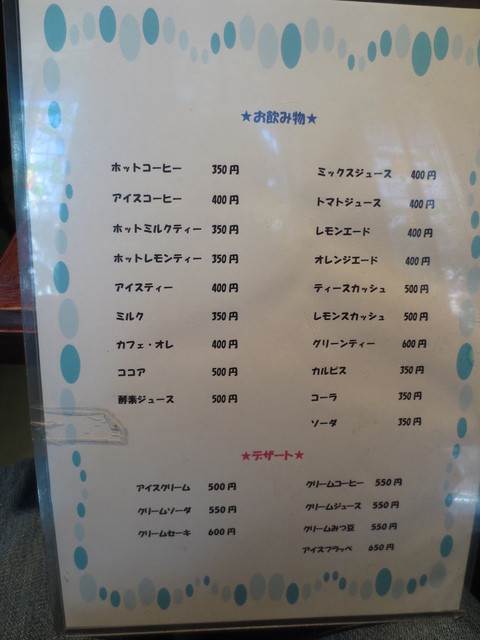 ★お飲み物★
ホットコーヒー 350円
アイスコーヒー 400円
ホットミルクティー 350円
ホットレモンティー 350円
アイスティー 400円
ミルク 350円
カフェ・オレ 400円
ココア 500円
酵素ジュース 500円
ミックスジュース 400円
トマトジュース 400円
レモンエード 400円
オレンジエード 400円
ティースカッシュ 500円
レモンスカッシュ 500円
グリーンティー 600円
カルピス 350円
コーラ 350円
ソーダ 350円
★デザート★
アイスクリーム 500円
クリームソーダ 550円
クリームセーキ 600円
クリームコーヒー 550円
クリームジュース 550円
クリームみつ豆 550円
アイスフラッペ 650円